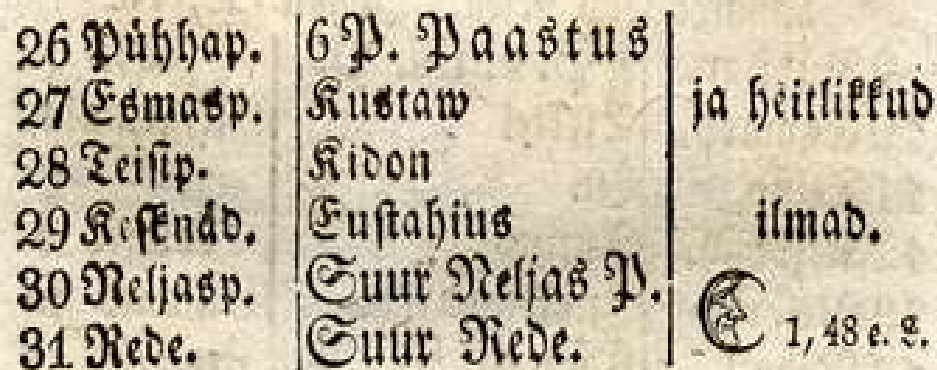 26 Pühhap. 6 P. Paastus
27 Esmasp. Kustaw ja heitlikkud
28 Teisip. Kidon
29 Kesknäd. Eustahius ilmad.
30 Neljasp. Suur Neljas P.
31 Rede. Suur Rede. 1, 48 e. L.